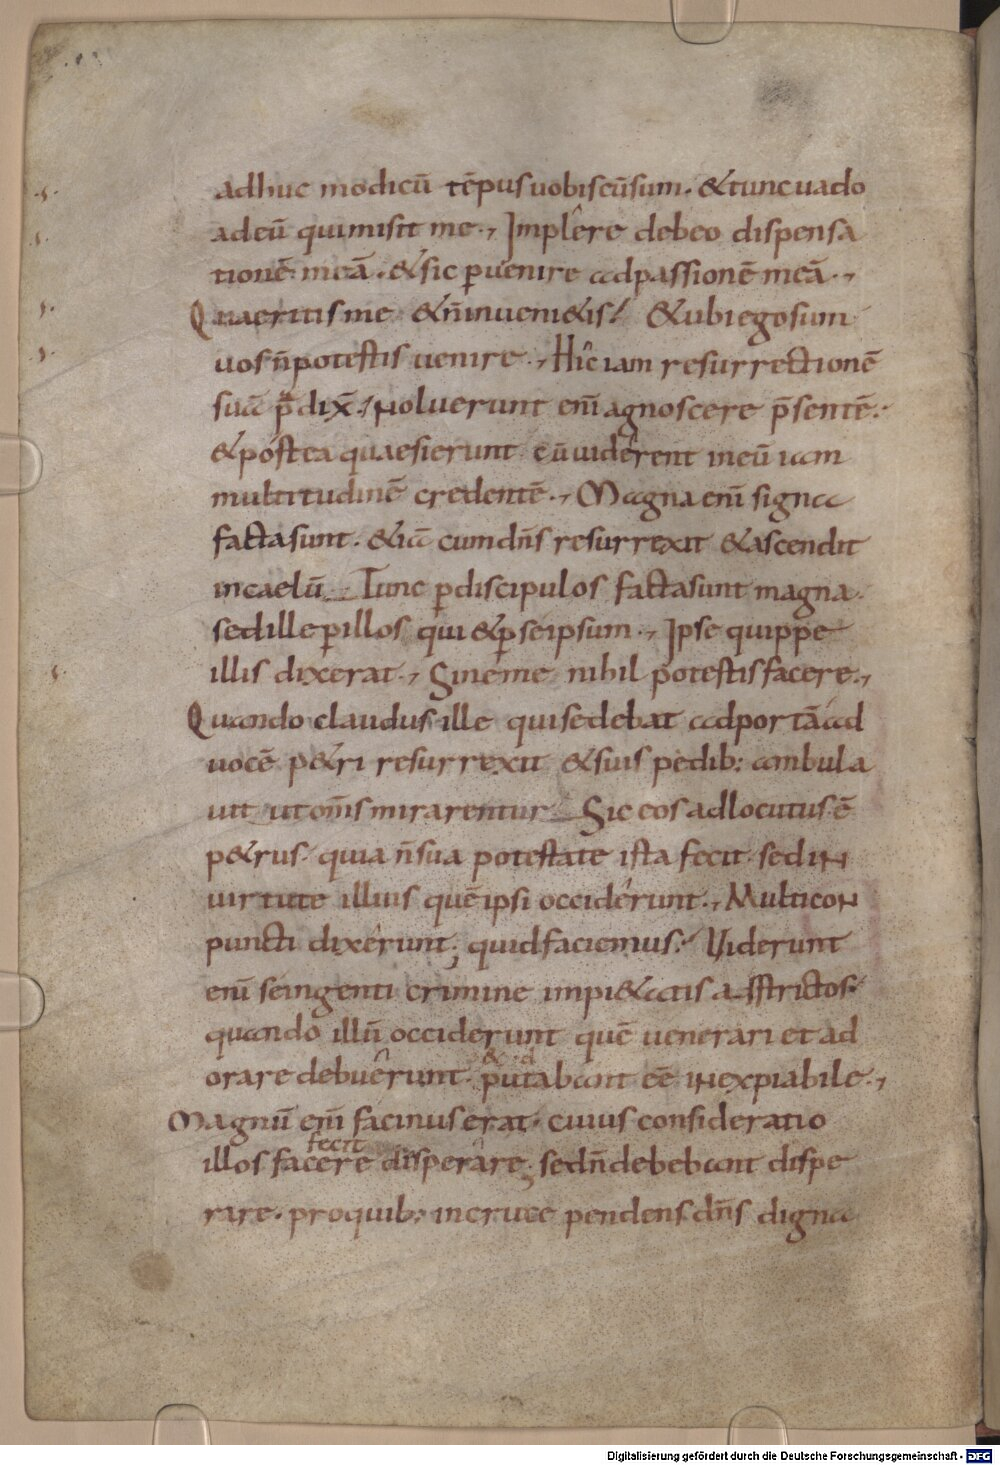 adhuc modicū tēpus uobiscūsum. &tunc uado
adeū quimisit me., Implêre debeo dispensa
tionē meā. &sic ꝑuenire adpassionē meā.,
Quaeritisme &n̄inueni&is? &ubiegosum
uosn̄potestis uenire., Hic iam resurrectionē
suā p̄dix̄. Noluerunt eni̅ agnoscere p̄sentē.
&postea quaesierunt cū uidêrent ineū iam
multitudinē credentē., Magna eni̅ signa
factasunt. &iā cum dn̄s resurrexit &ascendit
incaelū. Tunc ꝑdiscipulos factasunt magna.
sedille ꝑillos qui &ꝑseipsum., Ipse quippe
illis dixerat., Sineme nihil potestisfacere.,
Quando claudus ille quisedebat adportā ad
uocē p&ri resurrexit &suis pedib: ambula
uit ut om̄s mirarentur Sic eos adlocutus ē
p&rus. quia n̄sua potestate ista fecit. sediN
uirtute illius quē ipsi occidêrunt., MulticoN
puncti dixêrunt; quidfaciemus? Uiderunt
eni̅ seingenti crimine impi&atis asstrictos.
quando illū occiderunt quē uenerari et ad
orare debuêrunt. & d
putabant eē iNexpiabile.,
Magnū eni̅ facinus erat. cuius consideratio
fecit
illos facere disperâre; sedn̄debebant dispe
rare. proquib: incruce pendens dn̄s digna
Digitalisierung gefördert durch die Deutsche Forschungsgemeinschaft - DFG